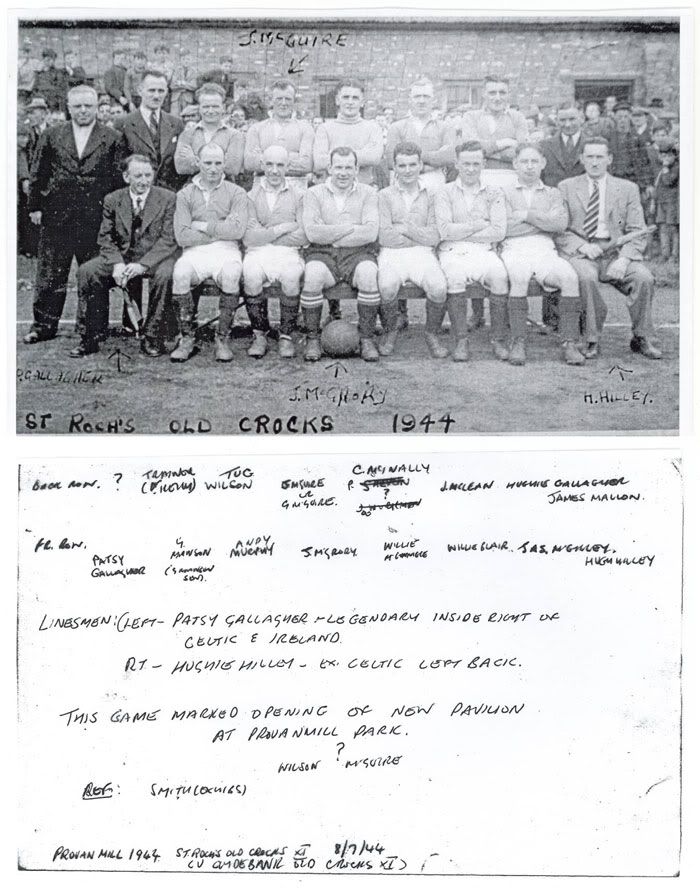 J. McGUIRE
P. GALLAGHER
J. McGRORY
H. HILLEY.
ST ROCH'S OLD CROCKS 1944
BACK ROW. ? TRAINOR TUG WILSON J McGUIRE OR G McGUIRE. C. McINALLY P. ? J. McLEAN HUGHIE GALLAGHER JAMES MALLON.
FR. ROW. PATSY GALLAGHER G. MANSON (S MANSON SEN). ANDY MURPHY J McGRORY WILLIE WILLIE BLAIR. JAS. McGILLEY. HUGH HILLEY
LINESMEN: (LEFT - PATSY GALLAGHER - LEGENDARY INSIDE RIGHT OF
CELTIC & IRELAND.
RT - HUGHIE HILLEY - EX. CELTIC LEFT BACK.
THIS GAME MARKED OPENING OF NEW PAVILION
AT PROVANMILL PARK.
?
WILSON McGUIRE
REF: SMITH (EX HIBS)
PROVAN MILL 1944 ST. ROCHS OLD CROCKS XI 8/7/44
(V CLYDEBANK OLD CROCKS XI)